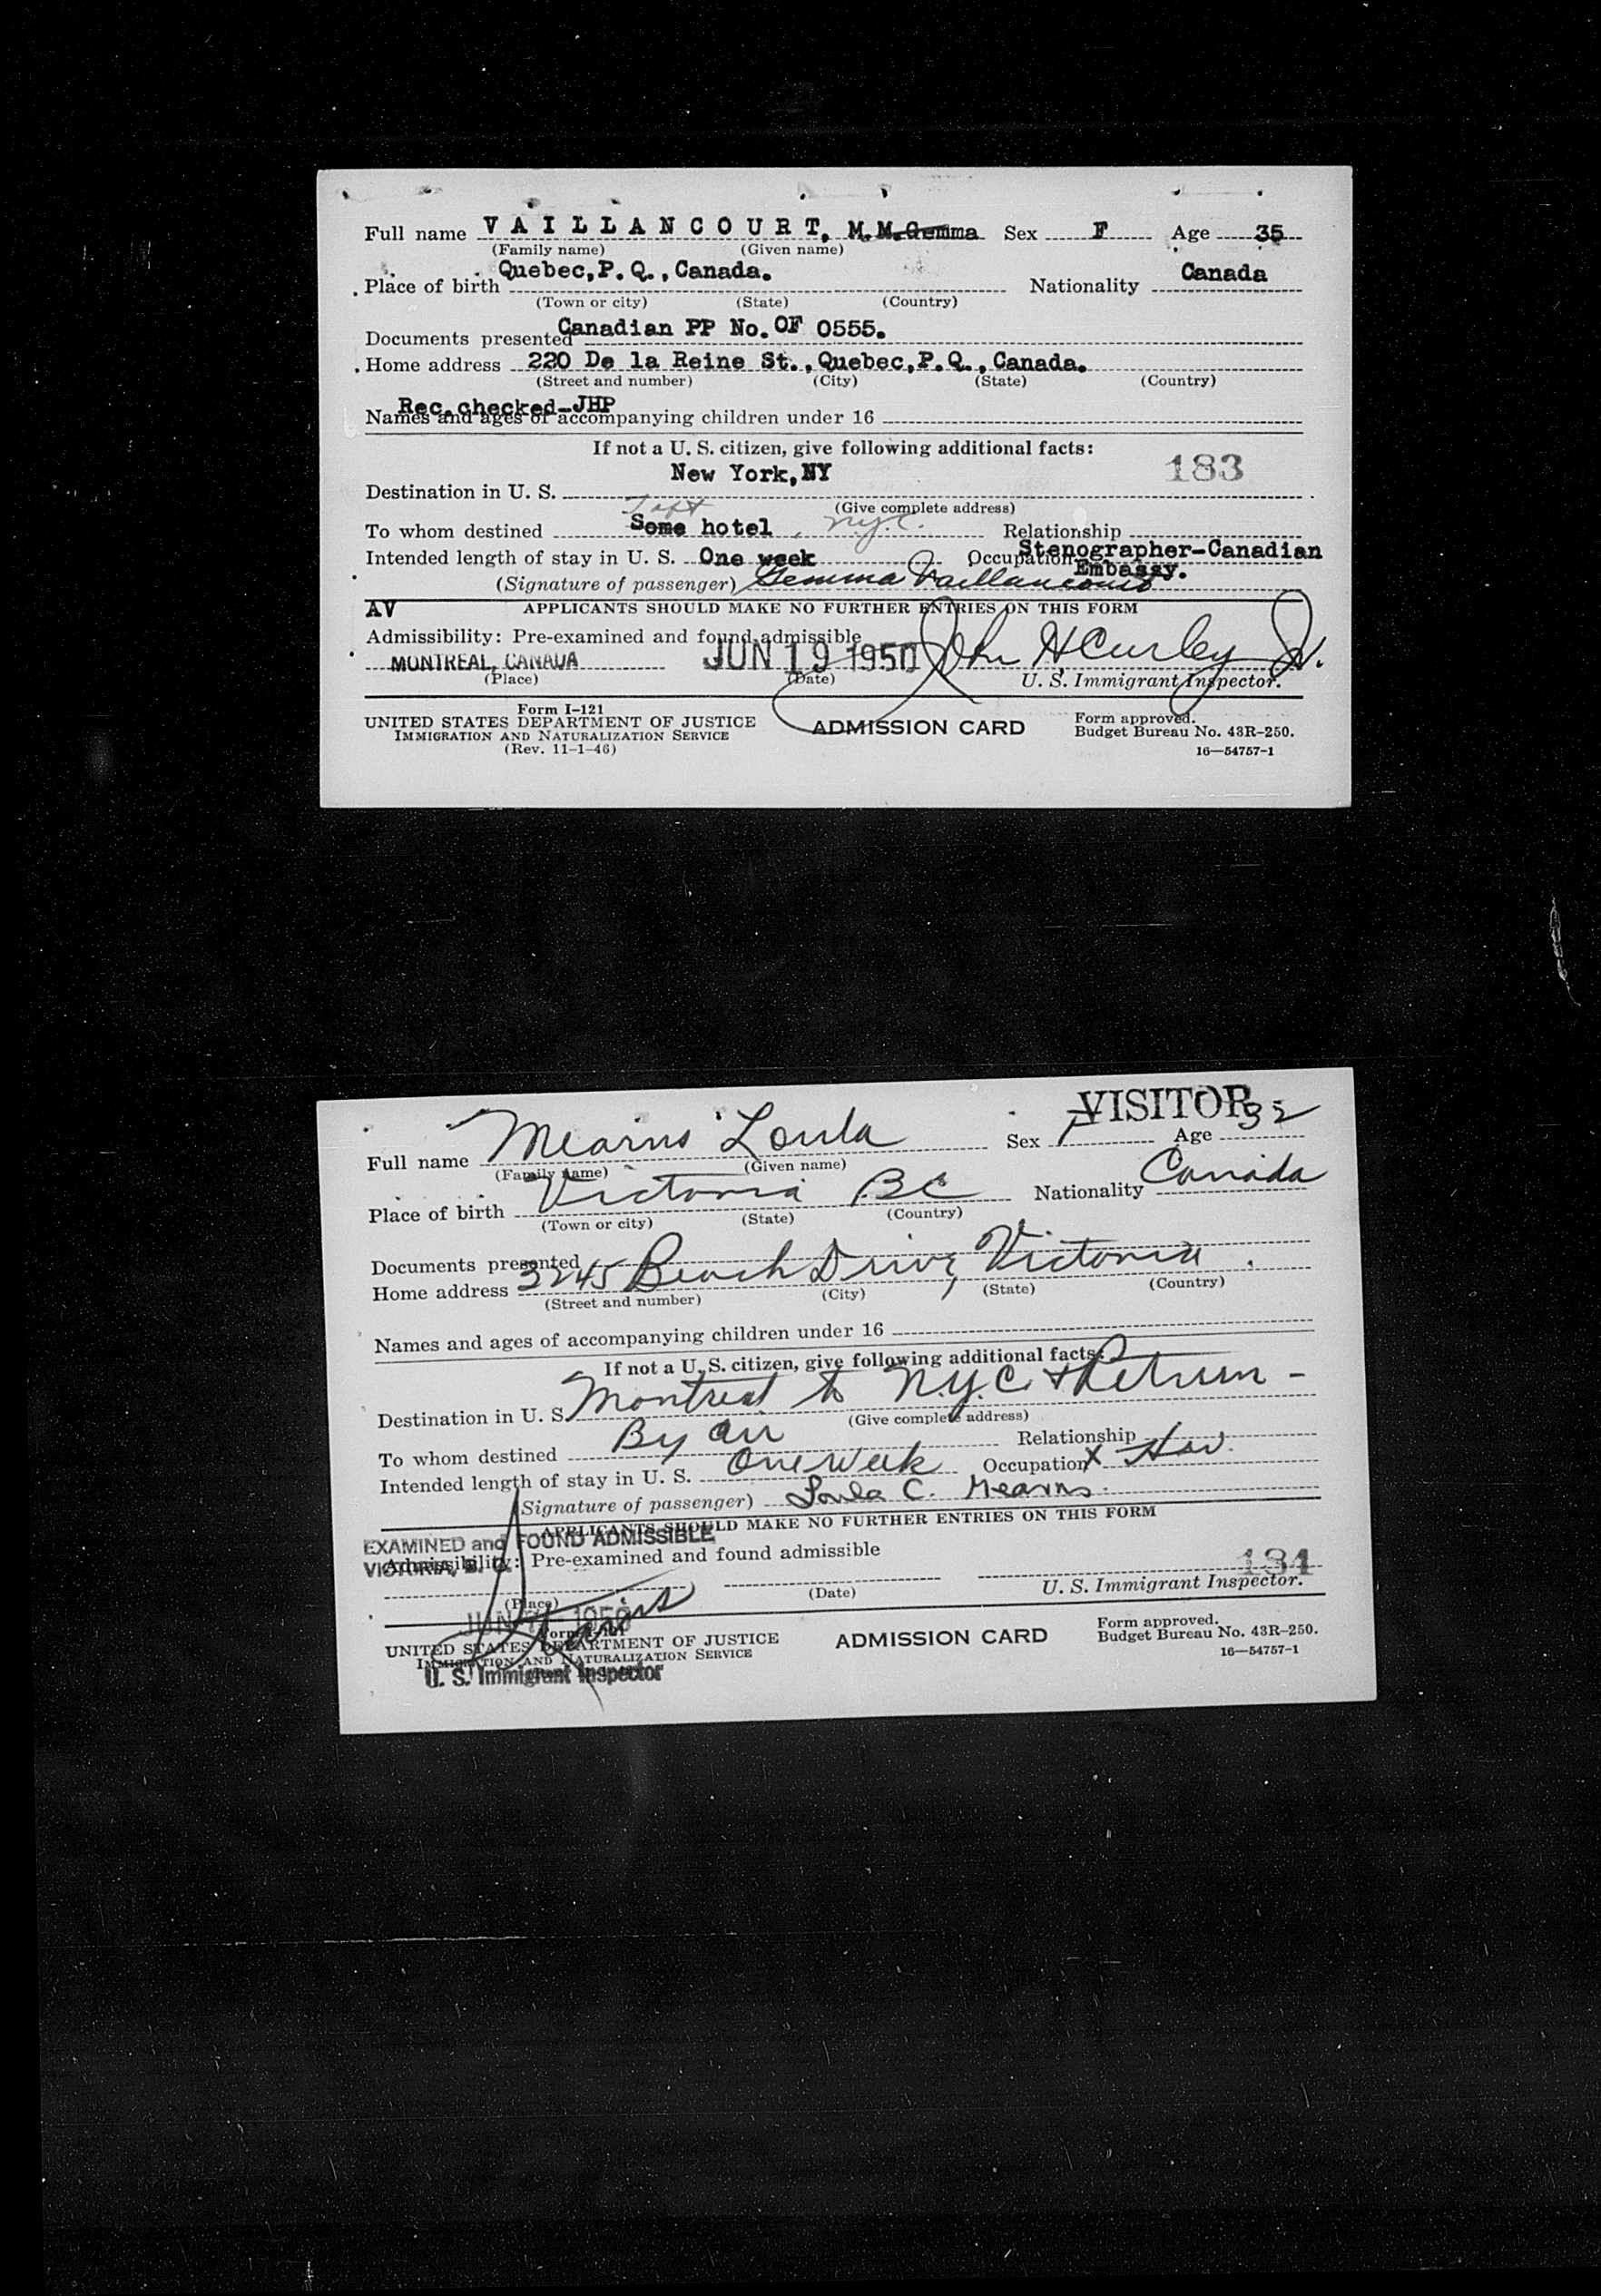 Full name VAILLANCOURT, M.M.Gemma Sex F Age 35
(Family name) (Given name)
Place of birth Quebec,P.Q.,Canada. Nationality Canada
(Town or city) (State) (Country)
Documents presented Canadian PP No. OF 0555.
Home address 220 De la Reine St.,Quebec,P.Q.,Canada.
(Street and number) (City) (State) (Country)
Rec.checked-JHP
Names and ages of accompanying children under 16
If not a U. S. citizen, give following additional facts:
183
Destination in U. S. New York,NY
(Give complete address)
Taft
To whom destined Some hotel, N.Y.C. Relationship
Intended length of stay in U. S. One week Occupation Stenographer-Canadian
Embassy.
(Signature of passenger) Gemma Vaillancourt
AV APPLICANTS SHOULD MAKE NO FURTHER ENTRIES ON THIS FORM
Admissibility: Pre-examined and found admissible
MONTREAL, CANADA JUN 19 1950 John H Curley Jr.
(Place) (Date) U. S. Immigrant Inspector.
Form I-121
UNITED STATES DEPARTMENT OF JUSTICE
IMMIGRATION AND NATURALIZATION SERVICE
(Rev. 11-1-46)
ADMISSION CARD
Form approved.
Budget Bureau No. 43R-250.
16—54757-1
VISITOR
Full name Mearns Loula Sex F Age 32
(Family name) (Given name)
Place of birth Victoria BC Nationality Canada
(Town or city) (State) (Country)
Documents presented
Home address 3245 Beach Drive, Victoria.
(Street and number) (City) (State) (Country)
Names and ages of accompanying children under 16
If not a U. S. citizen, give following additional facts:
Destination in U. S. Montreal to N.Y.C. & Return -
(Give complete address)
To whom destined By air Relationship
Intended length of stay in U. S. One week Occupation X
(Signature of passenger) Loula C. Mearns
APPLICANTS SHOULD MAKE NO FURTHER ENTRIES ON THIS FORM
EXAMINED and FOUND ADMISSIBLE
VICTORIA, B. C.
Admissibility: Pre-examined and found admissible
184
(Place) (Date) U. S. Immigrant Inspector.
JUN 1950
Form I-121
UNITED STATES DEPARTMENT OF JUSTICE
IMMIGRATION AND NATURALIZATION SERVICE
U. S. Immigrant Inspector
ADMISSION CARD
Form approved.
Budget Bureau No. 43R-250.
16—54757-1